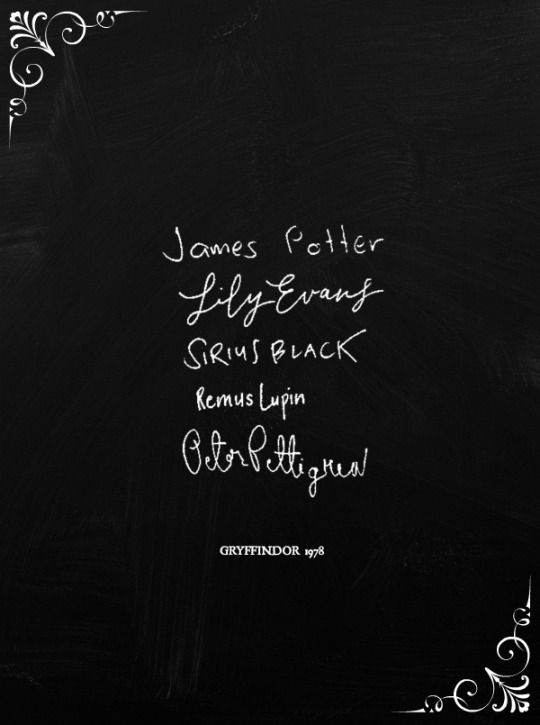 James Potter
Lily Evans
SIRIUS BLACK
Remus Lupin
Peter Pettigrew
GRYFFINDOR 1978